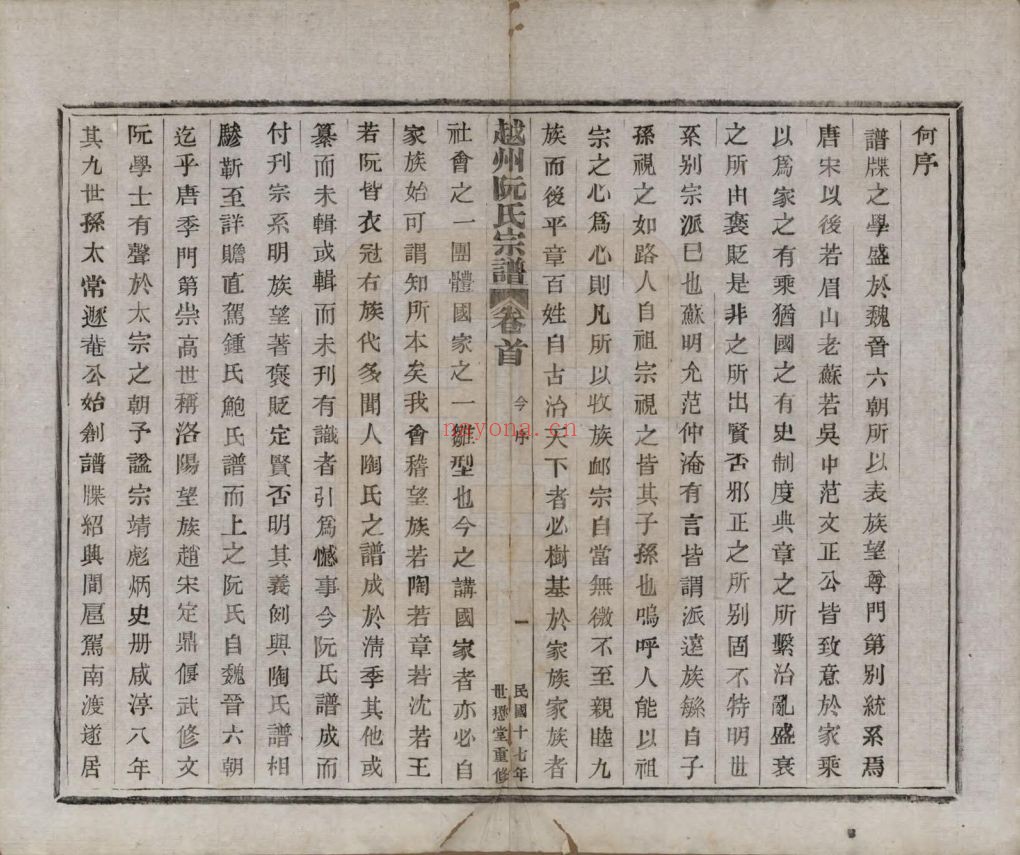 何序
譜牒之學盛於魏晉六朝所以表族望尊門第别統系焉
唐宋以後若眉山老蘇若吳中范文正公皆致意於家乘
以爲家之有乘猶國之有史制度典章之所繫治亂盛衰
之所由褒貶是非之所出賢否邪正之所别固不特明世
系别宗派已也蘇明允范仲淹有言皆謂派遠族緐自子
孫視之如路人自祖宗視之皆其子孫也嗚呼人能以祖
宗之心爲心則凡所以收族卹宗自當無微不至親睦九
族而後平章百姓自古治天下者必樹基於家族家族者
越州阮氏宗譜 卷首 今序 一 民國十七年
世㦤堂重修
社會之一團體國家之一雛型也今之講國家者亦必自
家族始可謂知所本矣我會稽望族若陶若章若沈若王
若阮皆衣冠右族代多聞人陶氏之譜成於淸季其他或
纂而未輯或輯而未刊有識者引爲憾事今阮氏譜成而
付刊宗系明族望著褒貶定賢否明其義例與陶氏譜相
驂靳至詳贍直駕鍾氏鮑氏譜而上之阮氏自魏晉六朝
迄乎唐季門第崇高世稱洛陽望族趙宋定鼎偃武修文
阮學士有聲於太宗之朝予諡宗靖彪炳史册咸淳八年
其九世孫太常遯菴公始創譜牒紹興間扈駕南渡遂居
nayona.cn